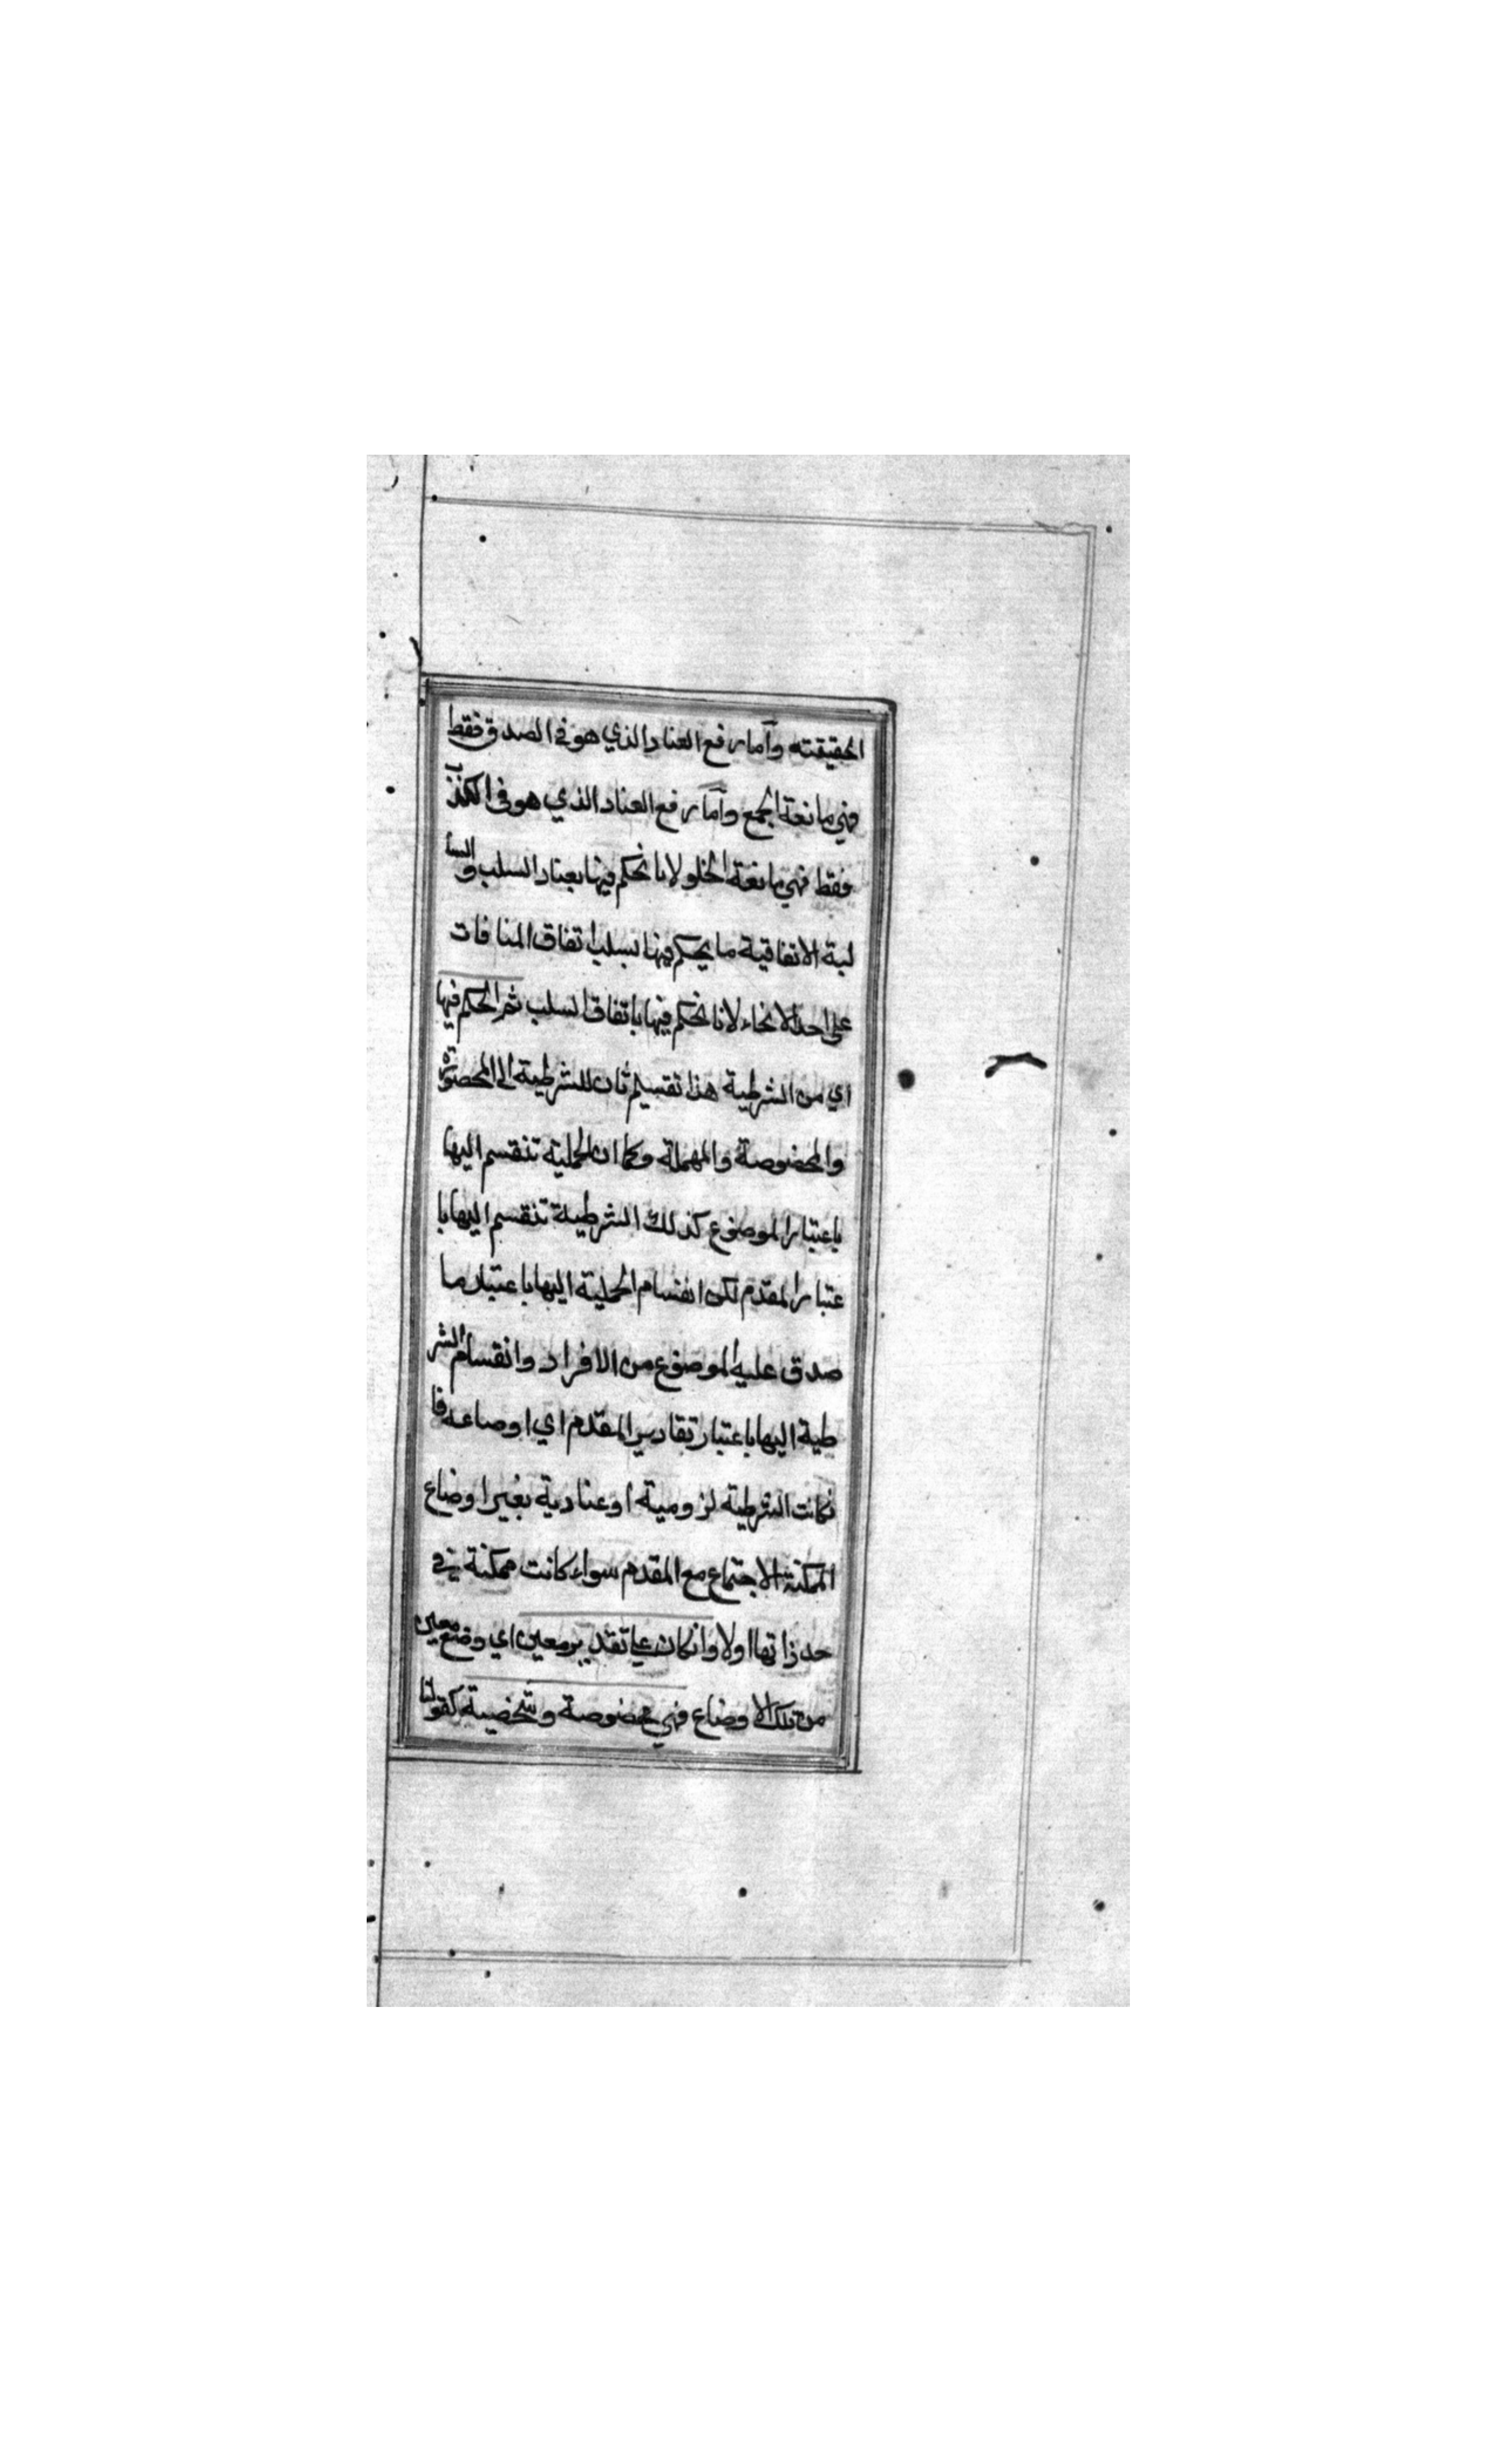 الحقيقته وأما رفع العناد الذي هو في الصدق فقط
فهي مانعة الجمع وأما رفع العناد الذي هو في الكذب
فقط فهي مانعة الخلو لانا نحكم فيها بعناد السلب والسا
لبة الاتفاقية ما يحكم فيها بسلب اتفاق المنافات
على احد الانحاء لانا نحكم فيها باتفاق السلب ثم الحكم فيها
اي من الشرطية هذا تقسيم ثان للشرطية الى المحصورة
والمخصوصة والمهملة وكما ان الحملية تنقسم اليها
باعتبار الموضوع كذلك الشرطية تنقسم اليها با
عتبار المقدم لكن انقسام الحملية اليها باعتبار ما
صدق عليه الموضوع من الافراد وانقسام الشر
طية اليها باعتبار تقادير المقدم اي اوضاعه فا
نكانت الشرطية لزومية او عنادية بغير اوضاع
الممكنة الاجتماع مع المقدم سواء كانت ممكنة في
حد ذاتها اولا وانكان على تقدير معين اي وضع معين
من تلك الاوضاع فهي مخصوصة وشخصية كقولنا